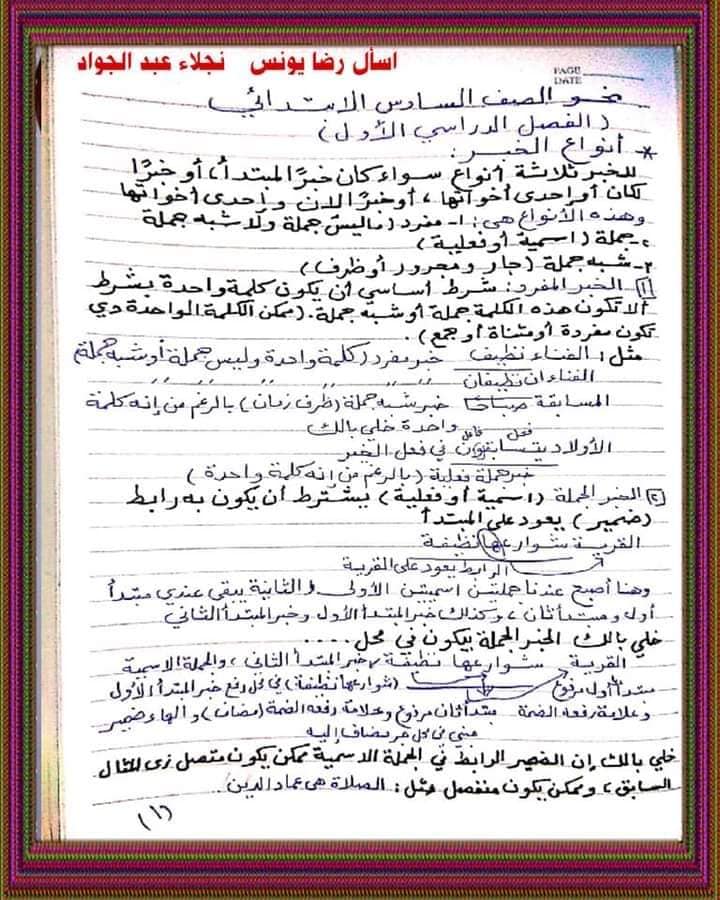 اسأل رضا يونس نجلاء عبد الجواد
PAGE
DATE
نحو الصف السادس الابتدائي
(الفصل الدراسي الأول)
* أنواع الخبر:
للخبر ثلاثة أنواع سواء كان خبرًا لمبتدأ، أو خبرًا
لكان أو إحدى أخواتها، أو خبرًا لإن وإحدى أخواتها
وهذه الأنواع هى: ١- مفرد (ماليس جملة ولا شبه جملة
٢- جملة (اسمية أو فعلية)
٣- شبه جملة (جار ومجرور أو ظرف)
١) الخبر المفرد: شرط أساسي أن يكون كلمة واحدة بشرط
ألا تكون هذه الكلمة جملة أو شبه جملة. (ممكن الكلمة الواحدة دي
تكون مفردة أو مثناة أو جمع).
مثل: الفناء نظيف خبر مفرد (كلمة واحدة وليس جملة أو شبه جملة)
الفناءان نظيفان " " " " " "
المسابقة صباحًا خبر شبه جملة (ظرف زمان) بالرغم من إنه كلمة
واحدة خلي بالك
فعل فاعل
الأولاد يتسابقون في فعل الخير
خبر جملة فعلية (بالرغم من إنه كلمة واحدة)
٢) الخبر الجملة (اسمية أو فعلية) يشترط أن يكون به رابط
(ضمير) يعود على المبتدأ
القرية شوارعها نظيفة
الرابط يعود على القرية
وهنا أصبح عندنا جملتين اسميتين الأولى والثانية يبقى عندي مبتدأ
أول ومبتدأ ثان، وكذلك خبر المبتدأ الأول وخبر المبتدأ الثاني
خلي بالك الخبر الجملة بيكون في محل ....
القرية شوارعها نظيفة خبر المبتدأ الثاني، والجملة الاسمية
مبتدأ أول مرفوع (شوارعها نظيفة) في محل رفع خبر المبتدأ الأول
وعلامة رفعه الضمة مبتدأ ثان مرفوع وعلامة رفعه الضمة (مضاف) والهاء ضمير
مبنى في محل جر مضاف إليه
خلي بالك إن الضمير الرابط في الجملة الاسمية ممكن يكون متصل زى المثال
السابق، وممكن يكون منفصل مثل: الصلاة هى عماد الدين.
(١)